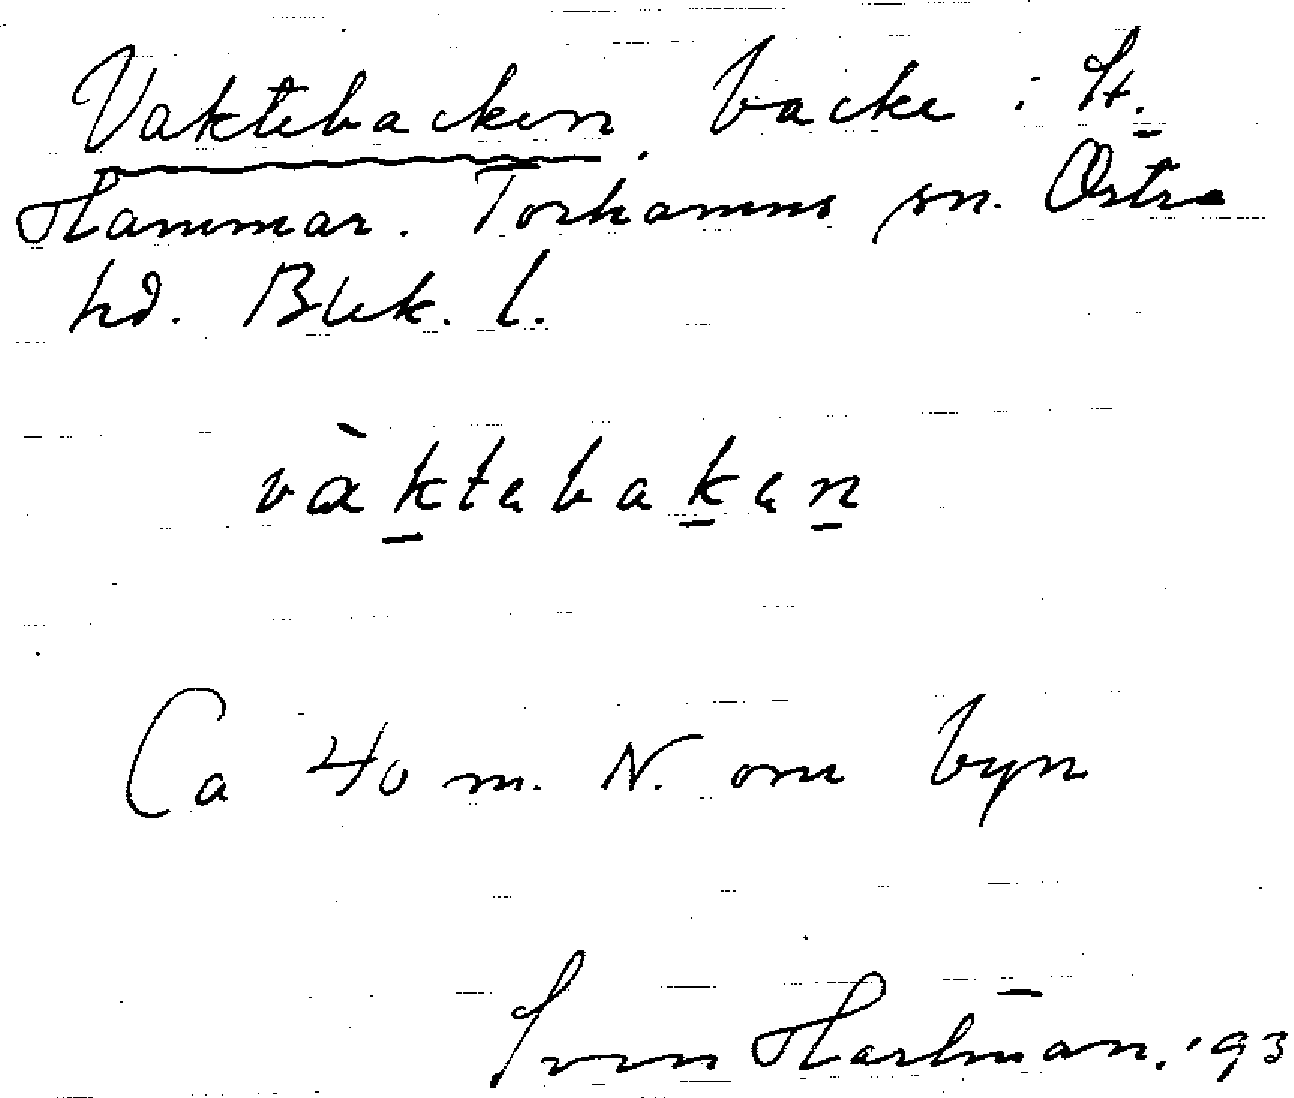 Vaktebacken, backe i St.
Hammar. Torhamns sn. Östra
hd. Blek. l.
vàktebaken
Ca 40 m. N. om byn
Sven Hartman. '93